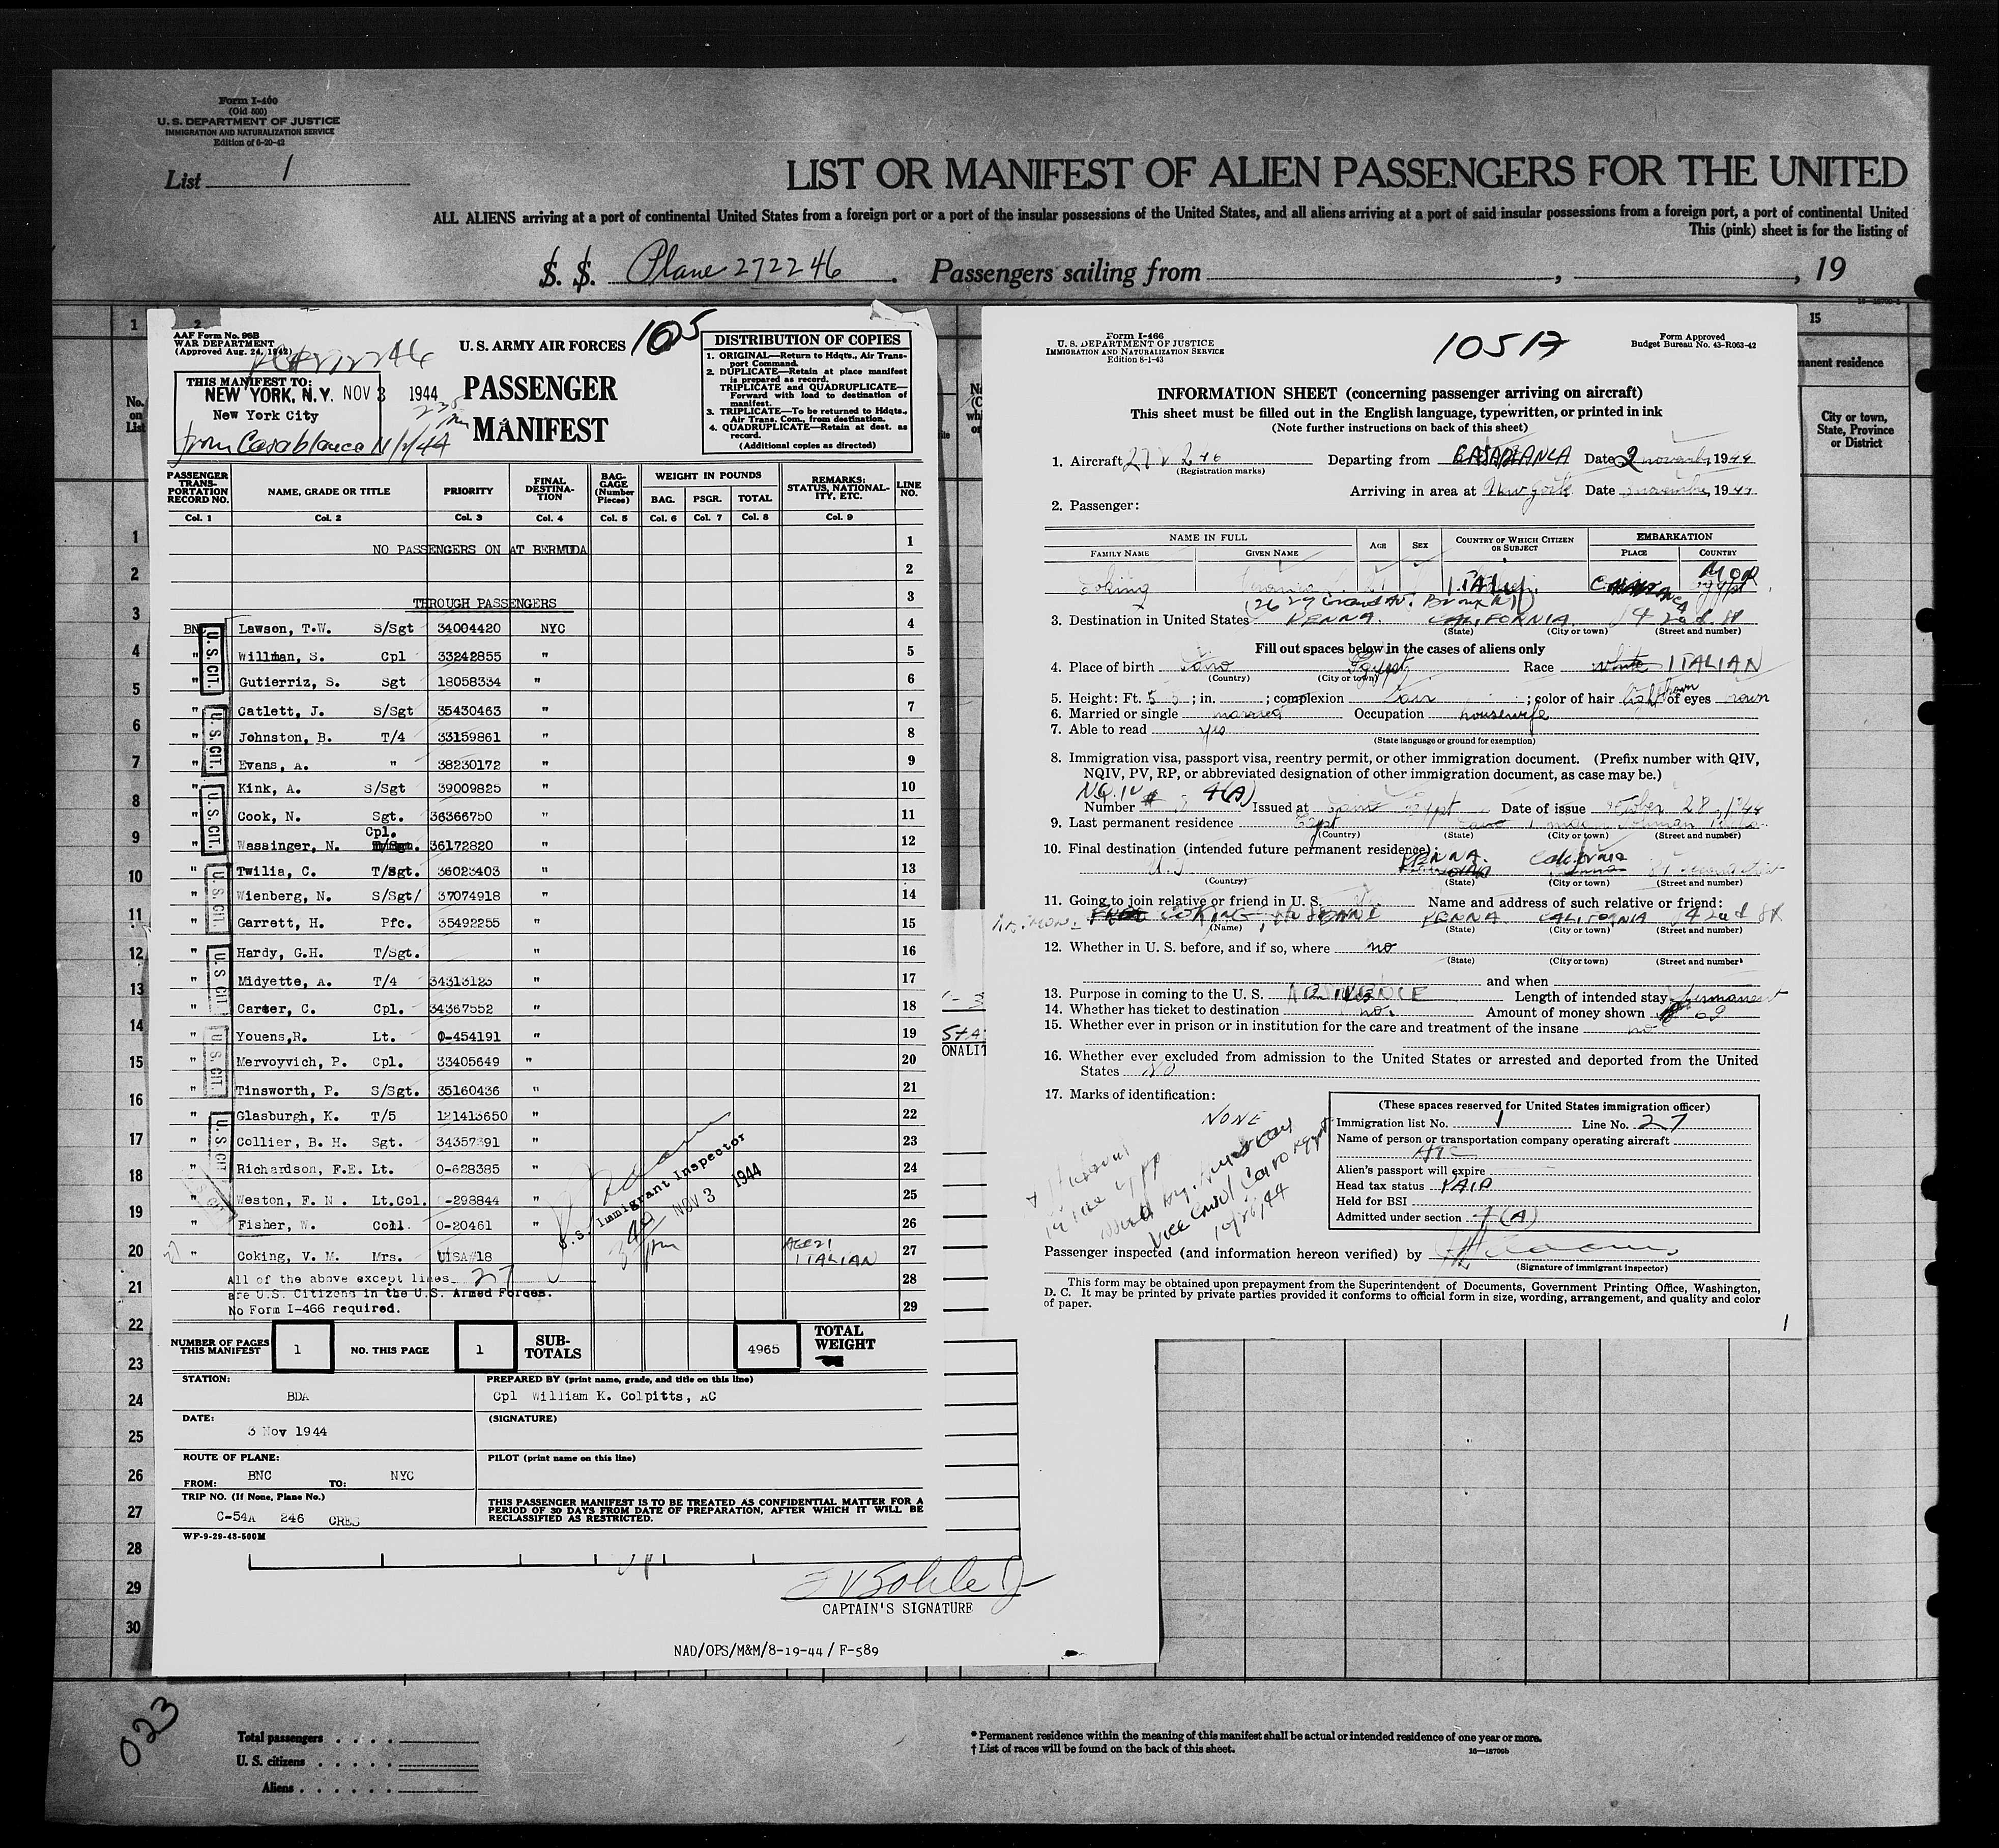 Form I-460
(Old 500)
U. S. DEPARTMENT OF JUSTICE
IMMIGRATION AND NATURALIZATION SERVICE
Edition of 6-20-42
List 1
LIST OR MANIFEST OF ALIEN PASSENGERS FOR THE UNITED
ALL ALIENS arriving at a port of continental United States from a foreign port or a port of the insular possessions of the United States, and all aliens arriving at a port of said insular possessions from a foreign port, a port of continental United
This (pink) sheet is for the listing of
S. S. Plane 272246 Passengers sailing from , , 19
AAF Form No. 96B
WAR DEPARTMENT
(Approved Aug. 24, 1942)
U. S. ARMY AIR FORCES 105
THIS MANIFEST TO:
NEW YORK, N.Y. NOV 3 1944
New York City
from Casablanca
PASSENGER
MANIFEST
DISTRIBUTION OF COPIES
1. ORIGINAL—Return to Hdqts., Air Transport Command.
2. DUPLICATE—Retain at place manifest is prepared as record.
TRIPLICATE and QUADRUPLICATE—Forward with load to destination of manifest.
3. TRIPLICATE—To be returned to Hdqts., Air Trans. Com., from destination.
4. QUADRUPLICATE—Retain at dest. as record.
(Additional copies as directed)
PASSENGER TRANSPORTATION RECORD NO. NAME, GRADE OR TITLE PRIORITY FINAL DESTINATION BAGGAGE (Number Pieces) WEIGHT IN POUNDS BAG. PSGR. TOTAL REMARKS: STATUS, NATIONALITY, ETC. LINE NO.
Col. 1 Col. 2 Col. 3 Col. 4 Col. 5 Col. 6 Col. 7 Col. 8 Col. 9
NO PASSENGERS ON AT BERMUDA 1
2
THROUGH PASSENGERS 3
BNC Lawson, T.W. S/Sgt 34004420 NYC 4
" Willman, S. Cpl 33242855 " 5
" Gutierriz, S. Sgt 18058334 " 6
" Catlett, J. S/Sgt 35430463 " 7
" Johnston, B. T/4 33159861 " 8
" Evans, A. " 38230172 " 9
" Kink, A. S/Sgt 39009825 " 10
" Cook, N. Sgt. 36366750 " 11
" Wassinger, N. Cpl. 36172820 " 12
" Twilia, C. T/Sgt. 36023403 " 13
" Wienberg, N. S/Sgt/ 37074918 " 14
" Garrett, H. Pfc. 35492255 " 15
" Hardy, G.H. T/Sgt. 16
" Midyette, A. T/4 34313123 " 17
" Carter, C. Cpl. 34367552 " 18
" Youens,R. Lt. 0-454191 " 19
" Mervoyvich, P. Cpl. 33405649 " 20
" Tinsworth, P. S/Sgt. 35160436 " 21
" Glasburgh, K. T/5 121413650 " 22
" Collier, B. H. Sgt. 34357391 " 23
" Richardson, F.E. Lt. 0-628385 " 24
" Weston, F. N. Lt.Col. 0-298844 " 25
" Fisher, W. Coll. 0-20461 " 26
" Coking, V. M. Mrs. UISA#18 AGE 21 ITALIAN 27
U.S. CIT.
U.S. CIT.
U.S. CIT.
U.S. CIT.
U.S. CIT.
U.S. CIT.
U.S. CIT.
U.S. Immigrant Inspector
NOV 3 1944
All of the above except lines 27 28
are U.S. Citizens in the U.S. Armed Forces.
No Form I-466 required. 29
NUMBER OF PAGES THIS MANIFEST 1 NO. THIS PAGE 1 SUB-TOTALS 4965 TOTAL WEIGHT
STATION: BDA
PREPARED BY (print name, grade, and title on this line)
Cpl William K. Colpitts, AC
DATE: 3 Nov 1944
(SIGNATURE)
ROUTE OF PLANE:
FROM: BNC TO: NYC
PILOT (print name on this line)
TRIP NO. (If None, Plane No.)
C-54A 246 CRES
THIS PASSENGER MANIFEST IS TO BE TREATED AS CONFIDENTIAL MATTER FOR A PERIOD OF 30 DAYS FROM DATE OF PREPARATION, AFTER WHICH IT WILL BE RECLASSIFIED AS RESTRICTED.
WF-9-29-43-500M
CAPTAIN'S SIGNATURE
NAD/OPS/M&M/8-19-44/F-589
Form I-466
U. S. DEPARTMENT OF JUSTICE
IMMIGRATION AND NATURALIZATION SERVICE
Edition 8-1-43
10517
Form Approved
Budget Bureau No. 43-R063-42
INFORMATION SHEET (concerning passenger arriving on aircraft)
This sheet must be filled out in the English language, typewritten, or printed in ink
(Note further instructions on back of this sheet)
1. Aircraft (Registration marks) Departing from CASABLANCA Date 2 november, 1944
Arriving in area at New York Date november, 1944
2. Passenger:
NAME IN FULL AGE SEX COUNTRY OF WHICH CITIZEN OR SUBJECT EMBARKATION
FAMILY NAME GIVEN NAME PLACE COUNTRY
Coking ITALY MOR
3. Destination in United States PENNA. CALIFORNIA
(State) (City or town) (Street and number)
Fill out spaces below in the cases of aliens only
4. Place of birth Cairo Egypt Race white ITALIAN
(Country) (City or town)
5. Height: Ft. 5 5; in. ; complexion fair ; color of hair of eyes
6. Married or single married Occupation housewife
7. Able to read yes
(State language or ground for exemption)
8. Immigration visa, passport visa, reentry permit, or other immigration document. (Prefix number with QIV,
NQIV, PV, RP, or abbreviated designation of other immigration document, as case may be.)
Number 4(A) Issued at Cairo Egypt Date of issue October 28, 1944
9. Last permanent residence Egypt Cairo
(Country) (State) (City or town) (Street and number)
10. Final destination (intended future permanent residence):
U.S PENNA. California
(Country) (State) (City or town) (Street and number)
11. Going to join relative or friend in U. S. Name and address of such relative or friend:
COKING HUSBAND PENNA CALIFORNIA
(Name) (State) (City or town) (Street and number)
12. Whether in U. S. before, and if so, where no
(State) (City or town) (Street and number)
and when
13. Purpose in coming to the U. S. RESIDENCE Length of intended stay permanent
14. Whether has ticket to destination no. Amount of money shown
15. Whether ever in prison or in institution for the care and treatment of the insane no
16. Whether ever excluded from admission to the United States or arrested and deported from the United
States NO
17. Marks of identification:
NONE
Vice Consul Cairo Egypt
10/26/44
(These spaces reserved for United States immigration officer)
Immigration list No. 1 Line No. 27
Name of person or transportation company operating aircraft
ATC
Alien's passport will expire
Head tax status PAID
Held for BSI
Admitted under section 4(A)
Passenger inspected (and information hereon verified) by
(Signature of immigrant inspector)
This form may be obtained upon prepayment from the Superintendent of Documents, Government Printing Office, Washington,
D. C. It may be printed by private parties provided it conforms to official form in size, wording, arrangement, and quality and color
of paper.
1
15
manent residence
City or town, State, Province or District
No. on List
1
2
3
4
5
6
7
8
9
10
11
12
13
14
15
16
17
18
19
20
21
22
23
24
25
26
27
28
29
30
023
Total passengers
U. S. citizens
Aliens
* Permanent residence within the meaning of this manifest shall be actual or intended residence of one year or more.
† List of races will be found on the back of this sheet.
16—18709b